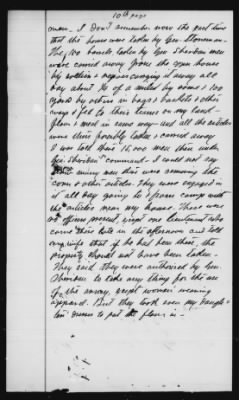 10th page
man. I don't remember now the exact time
that this horse was taken by Gen. Stoneman.
The 100 barrels taken by Gen Sheridans men
were carried away from the corn house
by soldiers & negroes carrying it away all
day about ½ of a mile by some & 100
yards by others in bags & baskets & other
ways & fed to their teams on my land.
flour & meat in same way and all the articles
were then forcibly taken & carried away
I was told there 15,000 men then under
Gen. Sheridan's command - I could not say
how many men there was removing the
corn & other articles. They were engaged in
it all day going to & from camp with
the articles near my house. There was
no officers present, except one lieutenant who
came there late in the afternoon and told
my wife that if he had been there, the
property should not have been taken.
They said they were authorized by Gen.
Sheridan to take any thing for the use
of the army, except women wearing
apparel. But they took even my daugh-
ters' dresses to put the flour in -